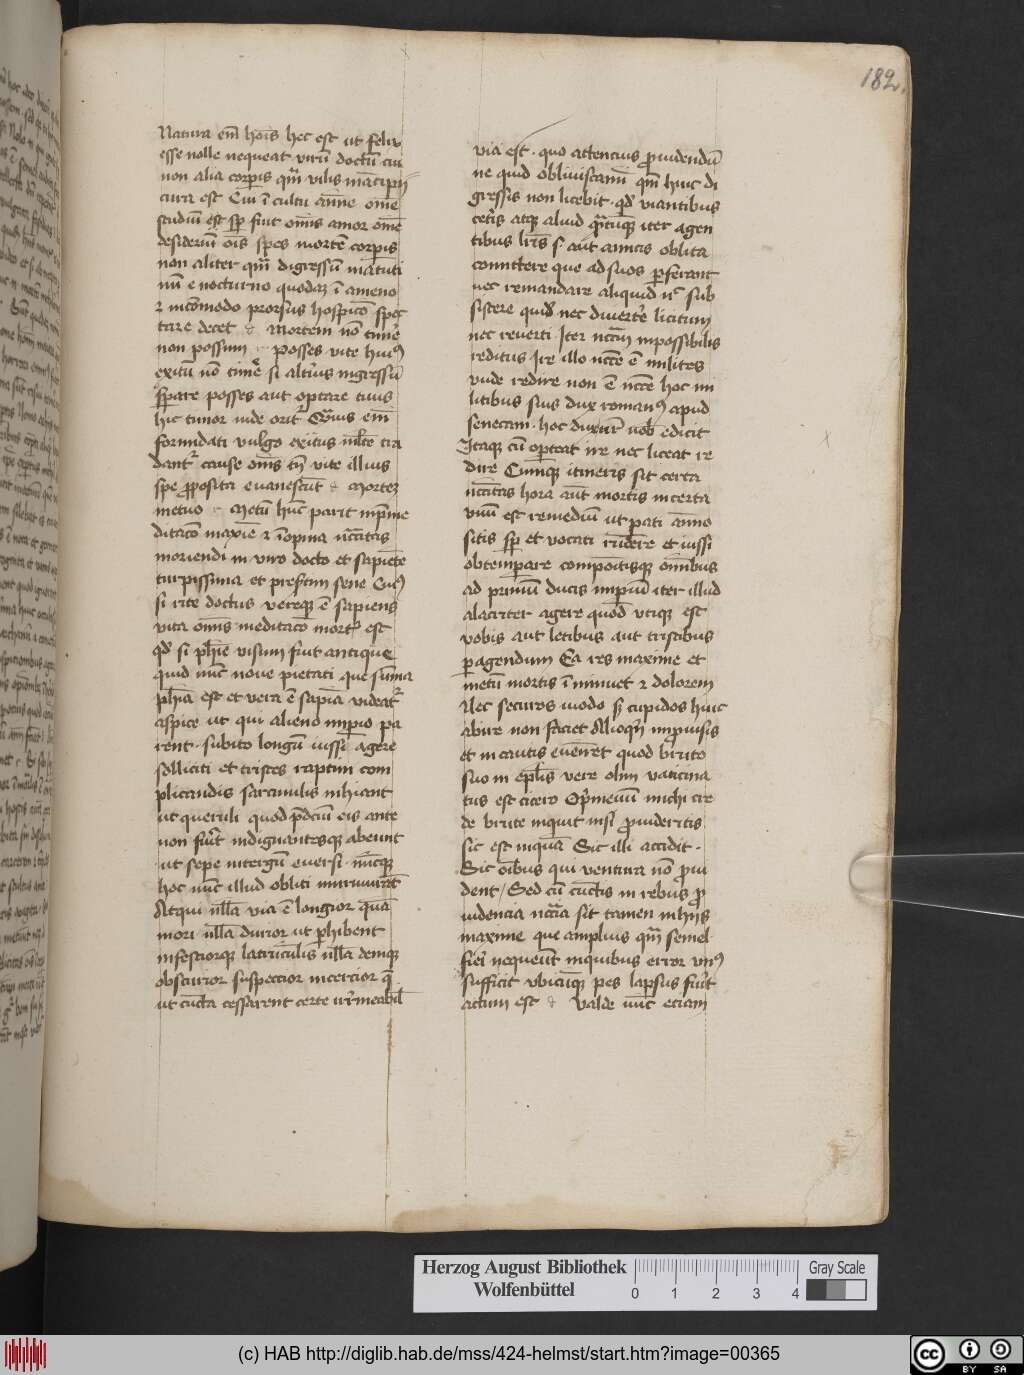 182
Natura em̄ hoīs hec est ut felix
esse nolle nequeat virū doctū cui
non alia corꝑis qm̄ vilis mācipij
cura est Cui ī cultu aīme om̄e
studiū est sꝑ fiut om̄is amor om̄e
desideriū oīs spes mortē corꝑis
non aliter qm̄ digressū matuti
nū e nocturno quodaꝫ ī ameno
⁊ incōmodo prorsus hospicō spec
tare decet Mortem nō timē
non possum Posses vite huiꝰ
exitū nō timē si altius ingressū
sꝑare posses aut optare cuius
hic timor inde orit Quius em̄
formidati vulgo exitus mlte tra
dant᷑ cause om̄is tn̄ vite illius
spe ꝓposita evanescut Mortē
metuo Metū huc parit inp̄me
ditacō maxīe ⁊ īopina nc̄citas
moriendi in viro docto et sapiēte
turpissima et presertim sene Cuiꝰ
si rite doctus vereqꝫ ē sapiens
vita om̄is meditacō mortꝭ est
qd̄ si ph̄ie visum fiut antique
quid nūc nove pietati que sūma
ph̄ia est et vera ē sapīa videat᷑
aspice ut qui alieno imperio pa
rent subito longū iussi agere
solliciti et tristes raptim com
plicandis sarcinulis inhiant
ut queruli quod p̄dciū eis ante
non fiūt indignantesqꝫ abeunt
ut sepe intergū eversi nūcqꝫ
hoc nūc illud obliti murmurāt
Atqui nll̄a via ē longior quā
mori nll̄a durior ut ꝑhibent
infestiorqꝫ latrūculis nll̄a deniqꝫ
obscurior suspectior incertior q̄
ut cūcta cessarent certe irr̄meabil̄
via est quo attencius ꝓvidendū
ne quid obliviscamī qm̄ huic di
gressis non licebit qd̄ viantibus
cetīs atqꝫ aliud q̄ntūqꝫ iter agen
tibus lr̄is s aut amicis oblita
comittere que ad suos ꝑferant
nec remandare aliquid nc̄ sub
sistere quid̄ nec divertē licitum
nec reverti Iter nccm̄ inpossibilis
reditus Ire illo nc̄ce ē milites
unde redire non ē nc̄ce hoc mi
litibus suis dux romanꝰ apud
senecam hoc dux nr̄ vob̄ edicit
Itaqꝫ cū oporteat ire nec liceat re
dire Cumqꝫ itineris sit certa
nc̄citas hora aūt mortis incerta
vnū est remediū ut pati animo
sitis sꝑ et vocati ridere et iussi
obtemꝑare compositisqꝫ om̄ibus
ad primū ducis imperiū iter illud
alacriter agere quod utiqꝫ est
vobis aut letibus aut tristibus
ꝑagendum Ea res maxime et
metū mortis īminuet ⁊ dolorem
Nec securos modo sꝫ cupidos huic
abire non faciet Alioqn̄ improvisis
et incautis eveniet quod bruto
suo in epl̄is vere olim vaticina
tus est cicero Opprimemī michi cre
de brute inquit nisi ꝓvideritis
sic est inquā Sic illi accidit
Sic om̄ibus qui ventura nō ꝓvi
dent / Sed cū cūctis in rebus ꝓ
videncia nc̄cīa sit tamen in hijs
maxime que amplius qm̄ semel
fieri nequeūt inquibus error vnꝰ
sufficit ubicūqꝫ pes lapsus fiut
actum est Valde nūc eciam
Herzog August Bibliothek
Wolfenbüttel
0 1 2 3 4
Gray Scale
(c) HAB http://diglib.hab.de/mss/424-helmst/start.htm?image=00365
cc BY SA